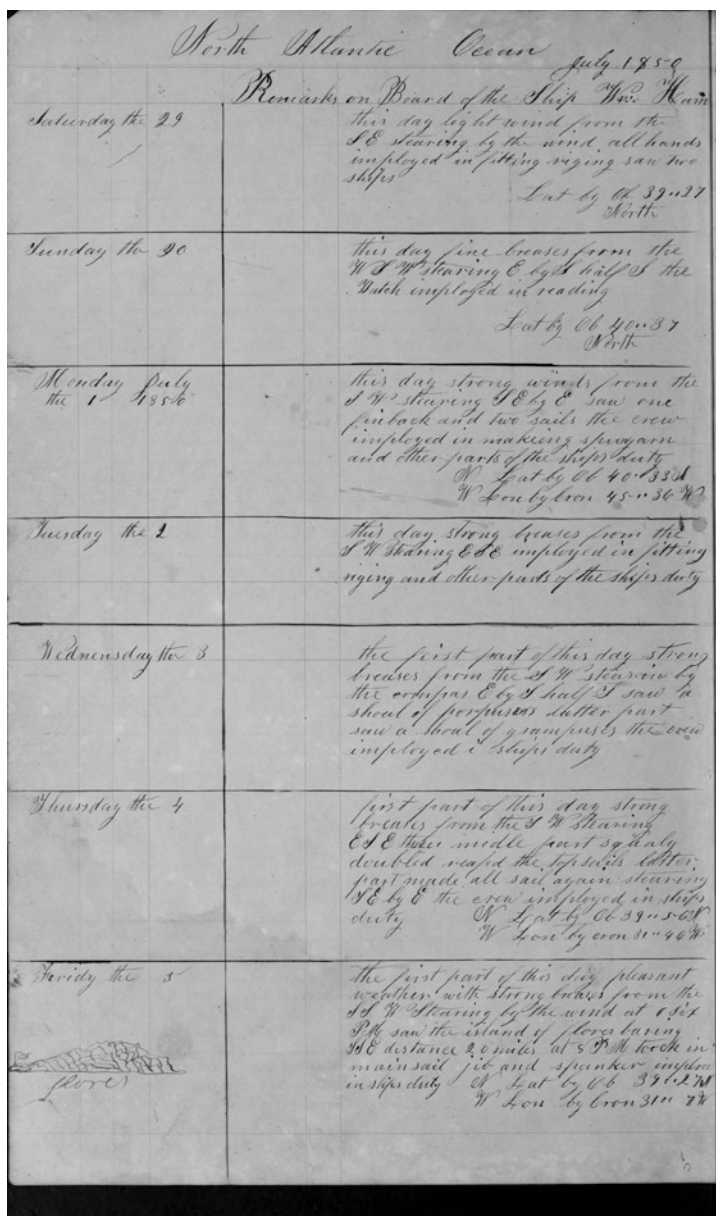 North Atlantic Ocean
July 1850
Remarks on Board of the Ship Wm. Ham
Saturday the 29
this day light wind from the
S E stearing by the wind all hands
imployed in fitting riging saw two
ships
Lat by Ob 39" 27
North
Sunday the 30
this day fine breases from the
W S W stearing E by S half S the
Watch imployed in reading
Lat by Ob 40" 37
North
Monday July
the 1 1850
this day strong winds from the
S W stearing S E by E saw one
finback and two sails the crew
imployed in makeing spunyarn
and other parts of the ships duty
N Lat by Ob 40" 33 N
W Lon by Cron 45" 36 W
Tuesday the 2
this day strong breases from the
S W Stearing E S E imployed in fitting
riging and other parts of the ships duty
Wednensday the 3
the first part of this day strong
breases from the S W stearin by
the compas E by S half S saw a
shoal of porpuses latter part
saw a shoal of grampuses the crew
imployed i ships duty
Thursday the 4
first part of this day strong
breases from the S W stearing
E S E midle part squaly
doubled reaped the topsails latter
part made all sail again stearing
S E by E the crew imployed in ships
duty N Lat by Ob 39" 56 N
W Lon by cron 46 W
Faridy the 5
the first part of this day pleasant
weather with strong breases from the
S S W Stearing by the wind at six
P M saw the island of flores baring
S S E distance 20 miles at 8 P M took in
mainsail jib and spanker
in ships duty N Lat by Ob 39" 27 N
W Lon by Cron 31" 7 W
flores